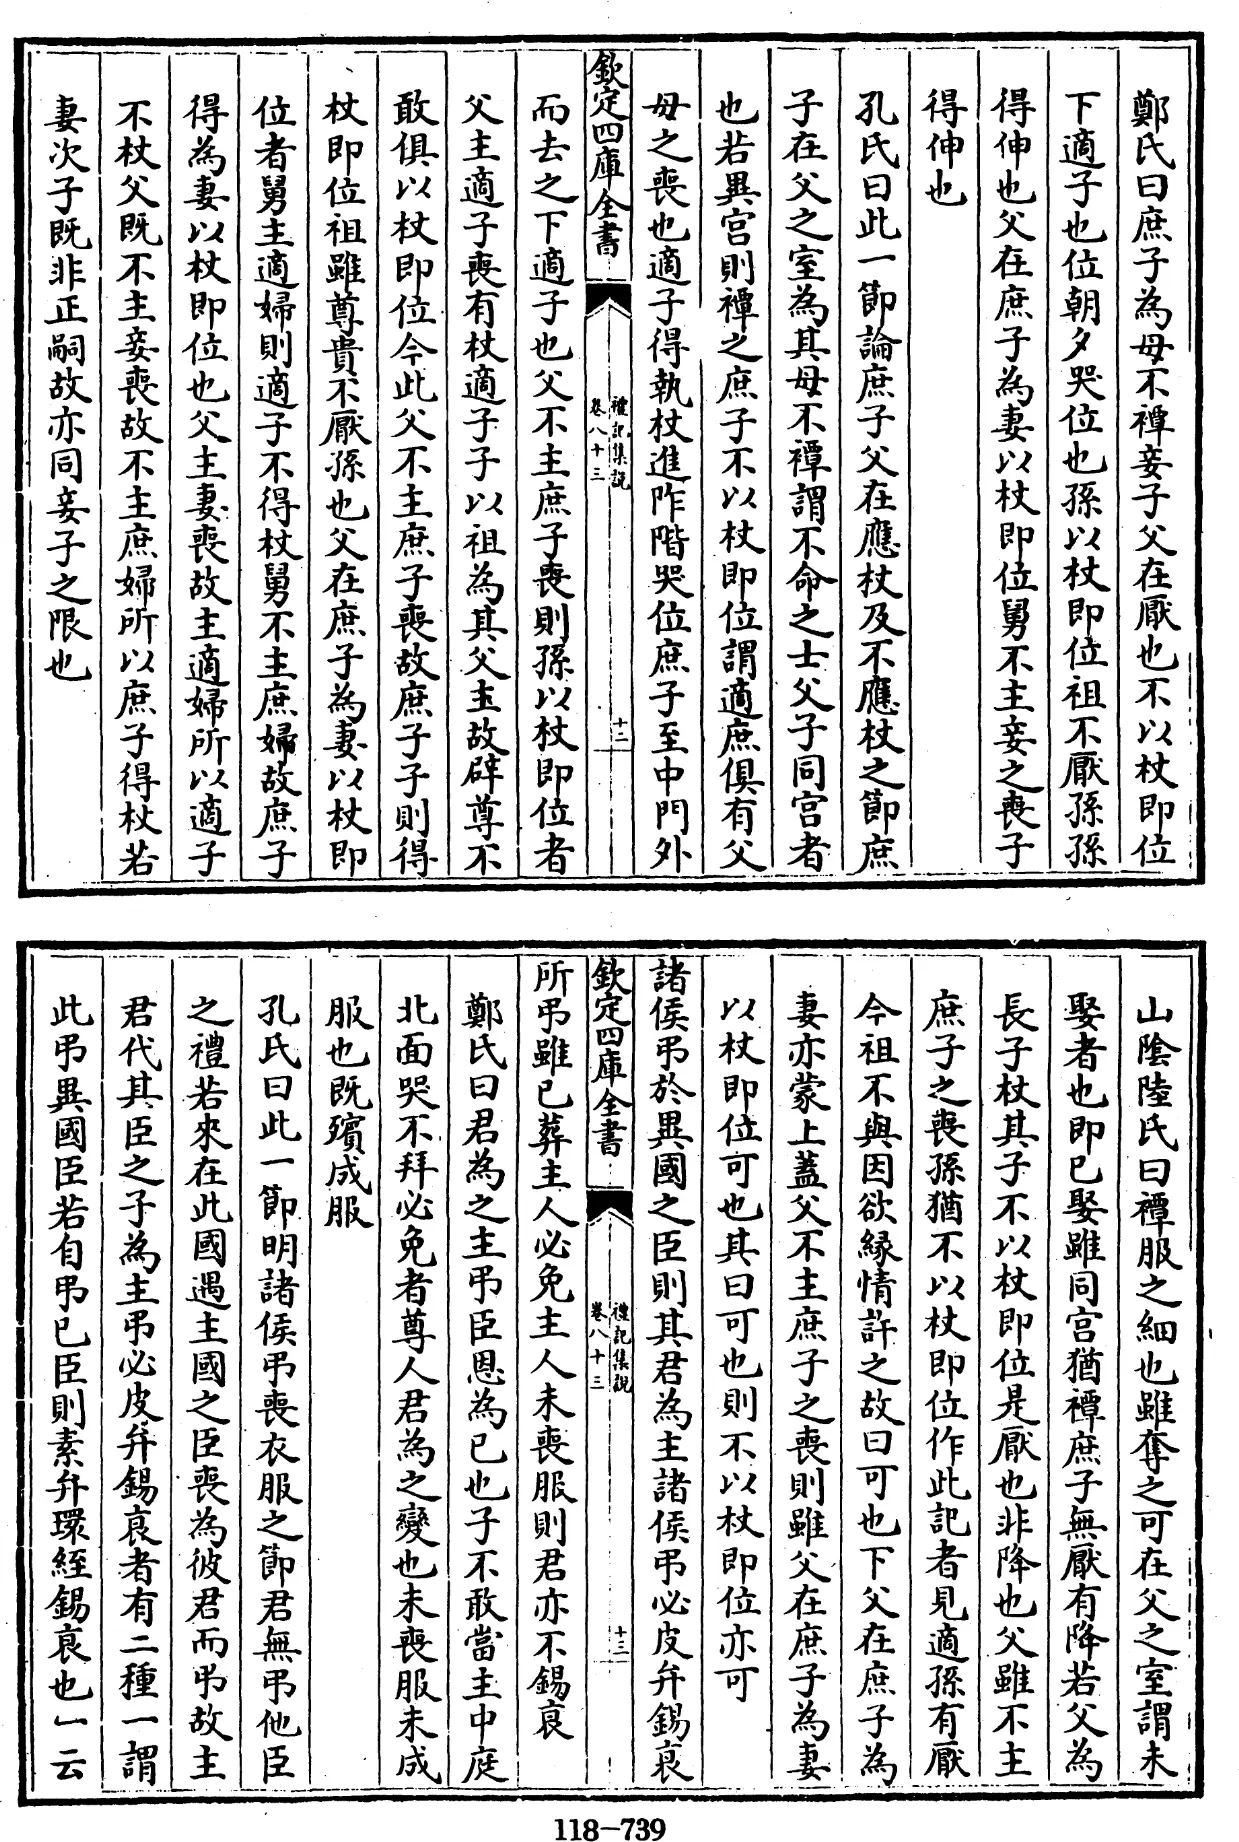 鄭氏曰庶子為母不禫妾子父在厭也不以杖即位
下適子也位朝夕哭位也孫以杖即位祖不厭孫孫
得伸也父在庶子為妻以杖即位舅不主妾之喪子
得伸也
孔氏曰此一節論庶子父在應杖及不應杖之節庶
子在父之室為其母不禫謂不命之士父子同宫者
也若異宫則禫之庶子不以杖即位謂適庶俱有父
母之喪也適子得執杖進阼階哭位庶子至中門外
欽定四庫全書
禮記集說
卷八十三
十二
而去之下適子也父不主庶子喪則孫以杖即位者
父主適子喪有杖適子子以祖為其父主故辟尊不
敢俱以杖即位今此父不主庶子喪故庶子子則得
杖即位祖雖尊貴不厭孫也父在庶子為妻以杖即
位者舅主適婦則適子不得杖舅不主庶婦故庶子
得為妻以杖即位也父主妻喪故主適婦所以適子
不杖父既不主妾喪故不主庶婦所以庶子得杖若
妻次子既非正嗣故亦同妾子之限也
山隂陸氏曰禫服之細也雖奪之可在父之室謂未
娶者也即已娶雖同宫猶禫庶子無厭有降若父為
長子杖其子不以杖即位是厭也非降也父雖不主
庶子之喪孫猶不以杖即位作此記者見適孫有厭
今祖不與因欲緣情許之故曰可也下父在庶子為
妻亦蒙上蓋父不主庶子之喪則雖父在庶子為妻
以杖即位可也其曰可也則不以杖即位亦可
諸侯弔於異國之臣則其君為主諸侯弔必皮弁錫衰
欽定四庫全書
禮記集說
卷八十三
十三
所弔雖已葬主人必免主人未喪服則君亦不錫衰
鄭氏曰君為之主弔臣恩為己也子不敢當主中庭
北面哭不拜必免者尊人君為之變也未喪服未成
服也既殯成服
孔氏曰此一節明諸侯弔喪衣服之節君無弔他臣
之禮若來在此國遇主國之臣喪為彼君而弔故主
君代其臣之子為主弔必皮弁錫衰者有二種一謂
此弔異國臣若自弔已臣則素弁環絰錫衰也一云
118-739